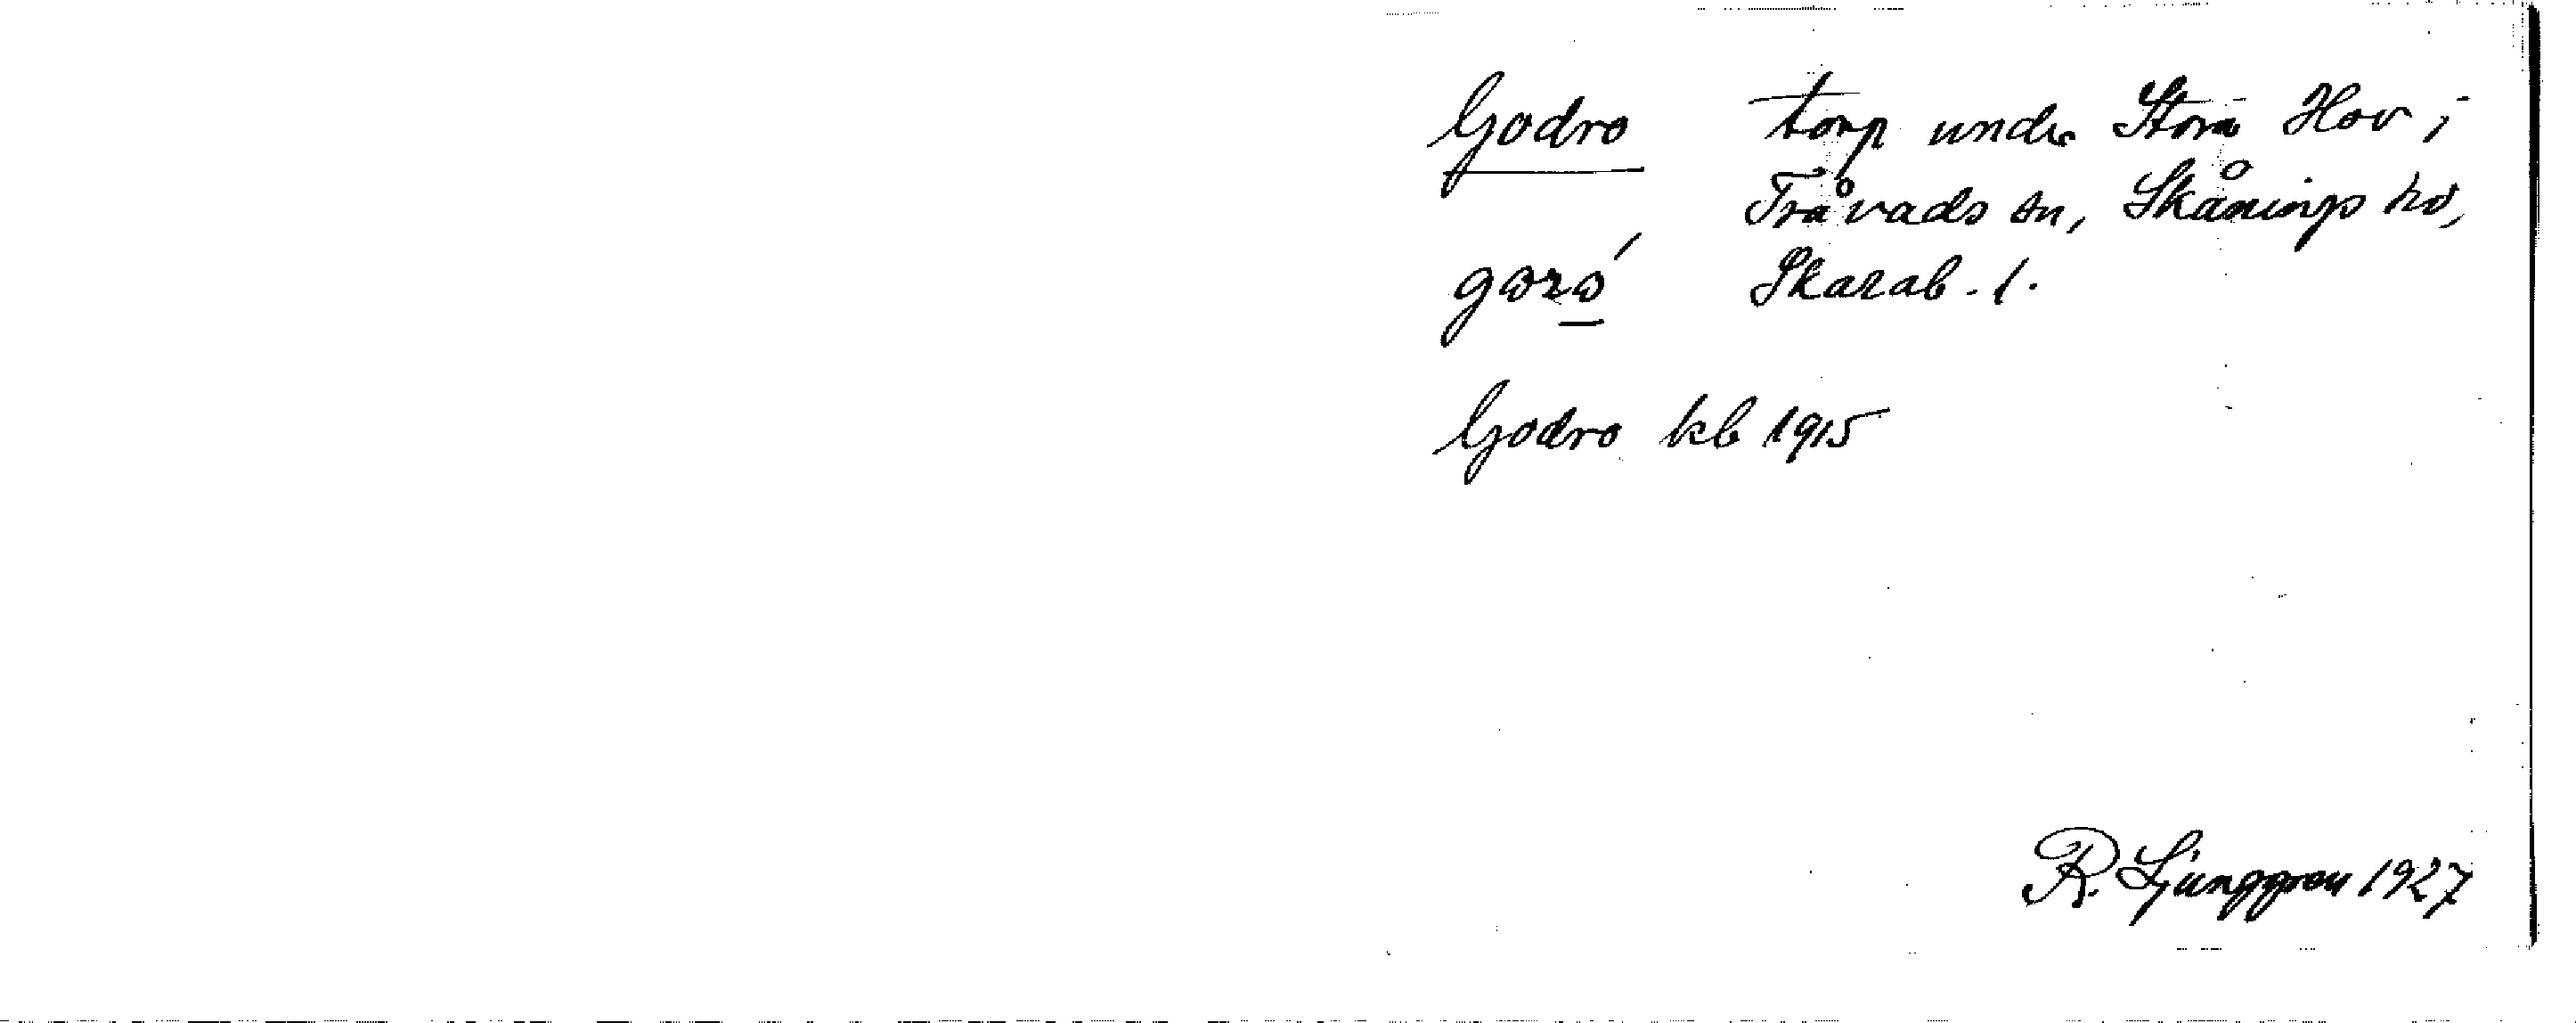 Godro torp under Stora Hov i
Tråvads sn, Skånings hd,
Skarab. l.
Godro kb 1915
R. Ljunggren 1927